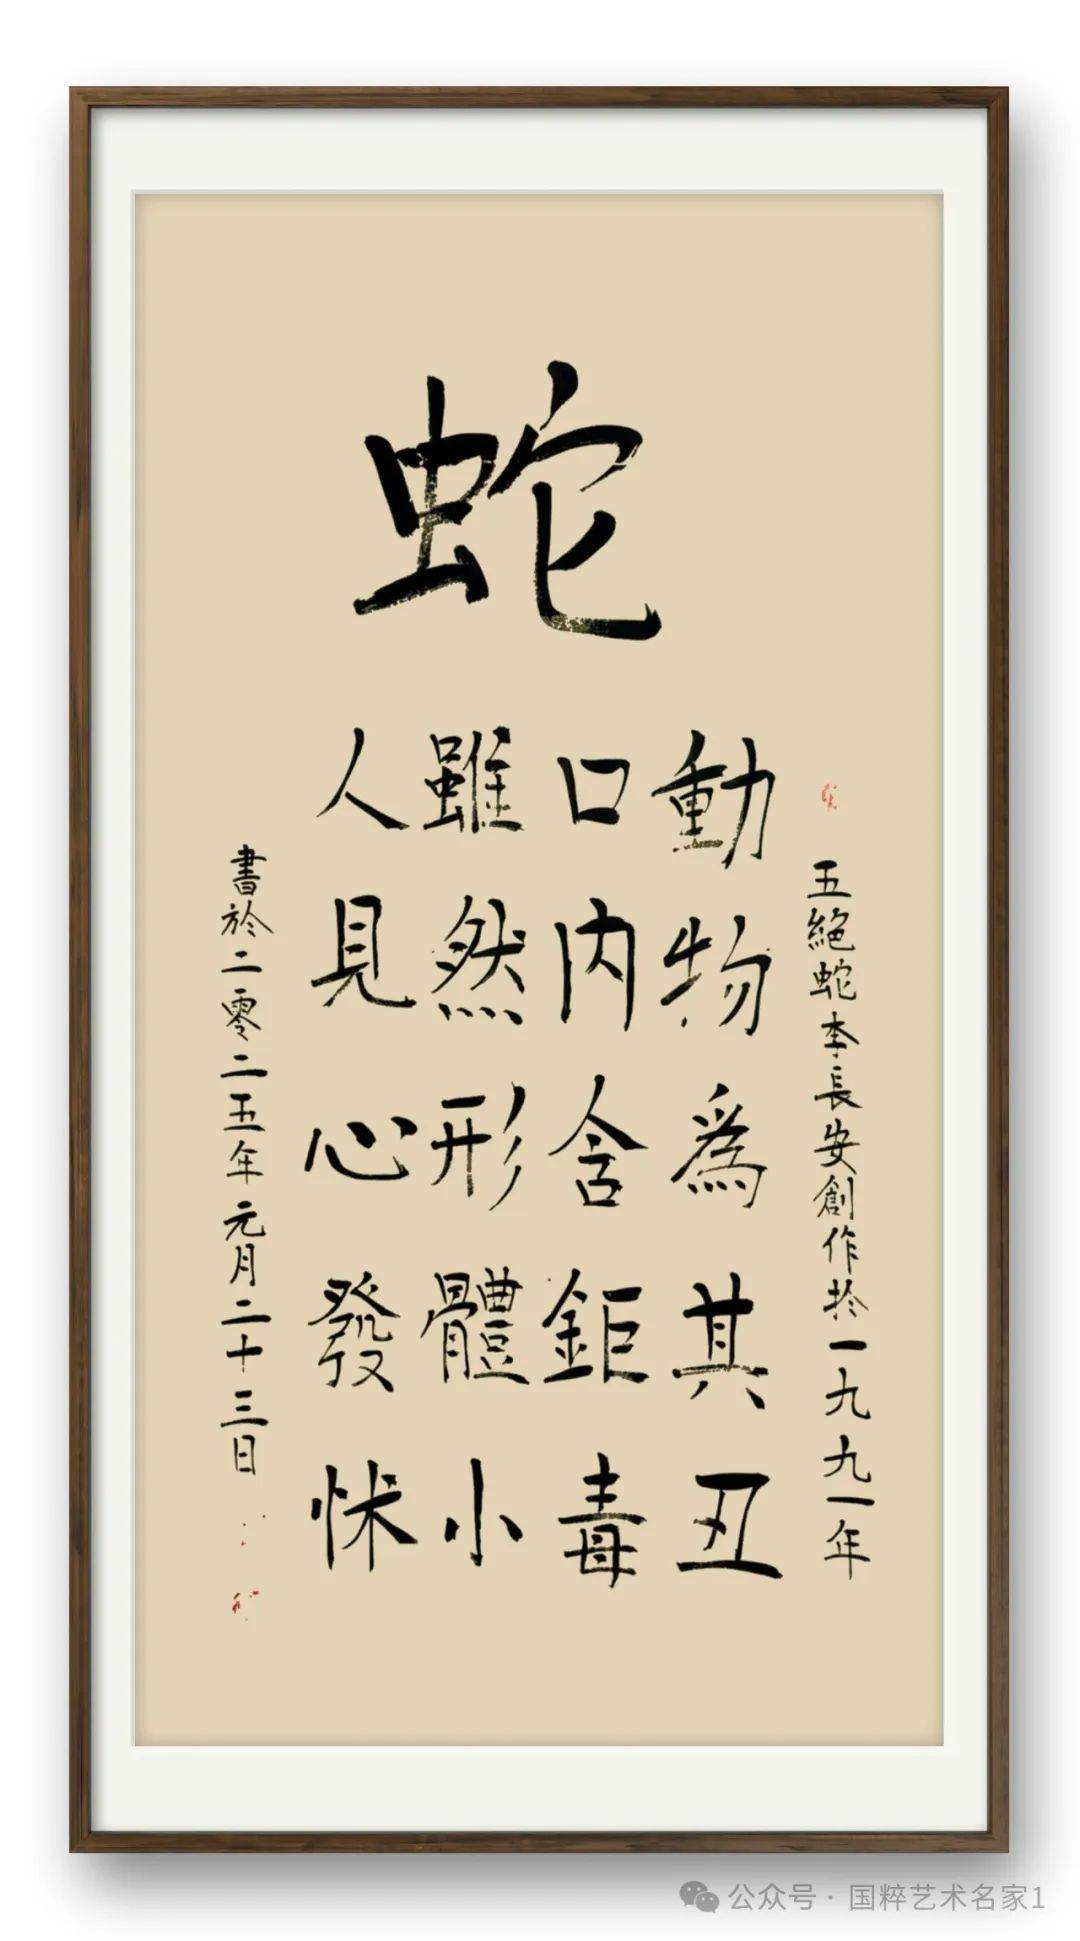 蛇
五絶蛇李長安創作於一九九一年
動物為其丑
口内含鉅毒
雖然形體小
人見心發怵
書於二零二五年元月二十三日
公众号 · 国粹艺术名家1